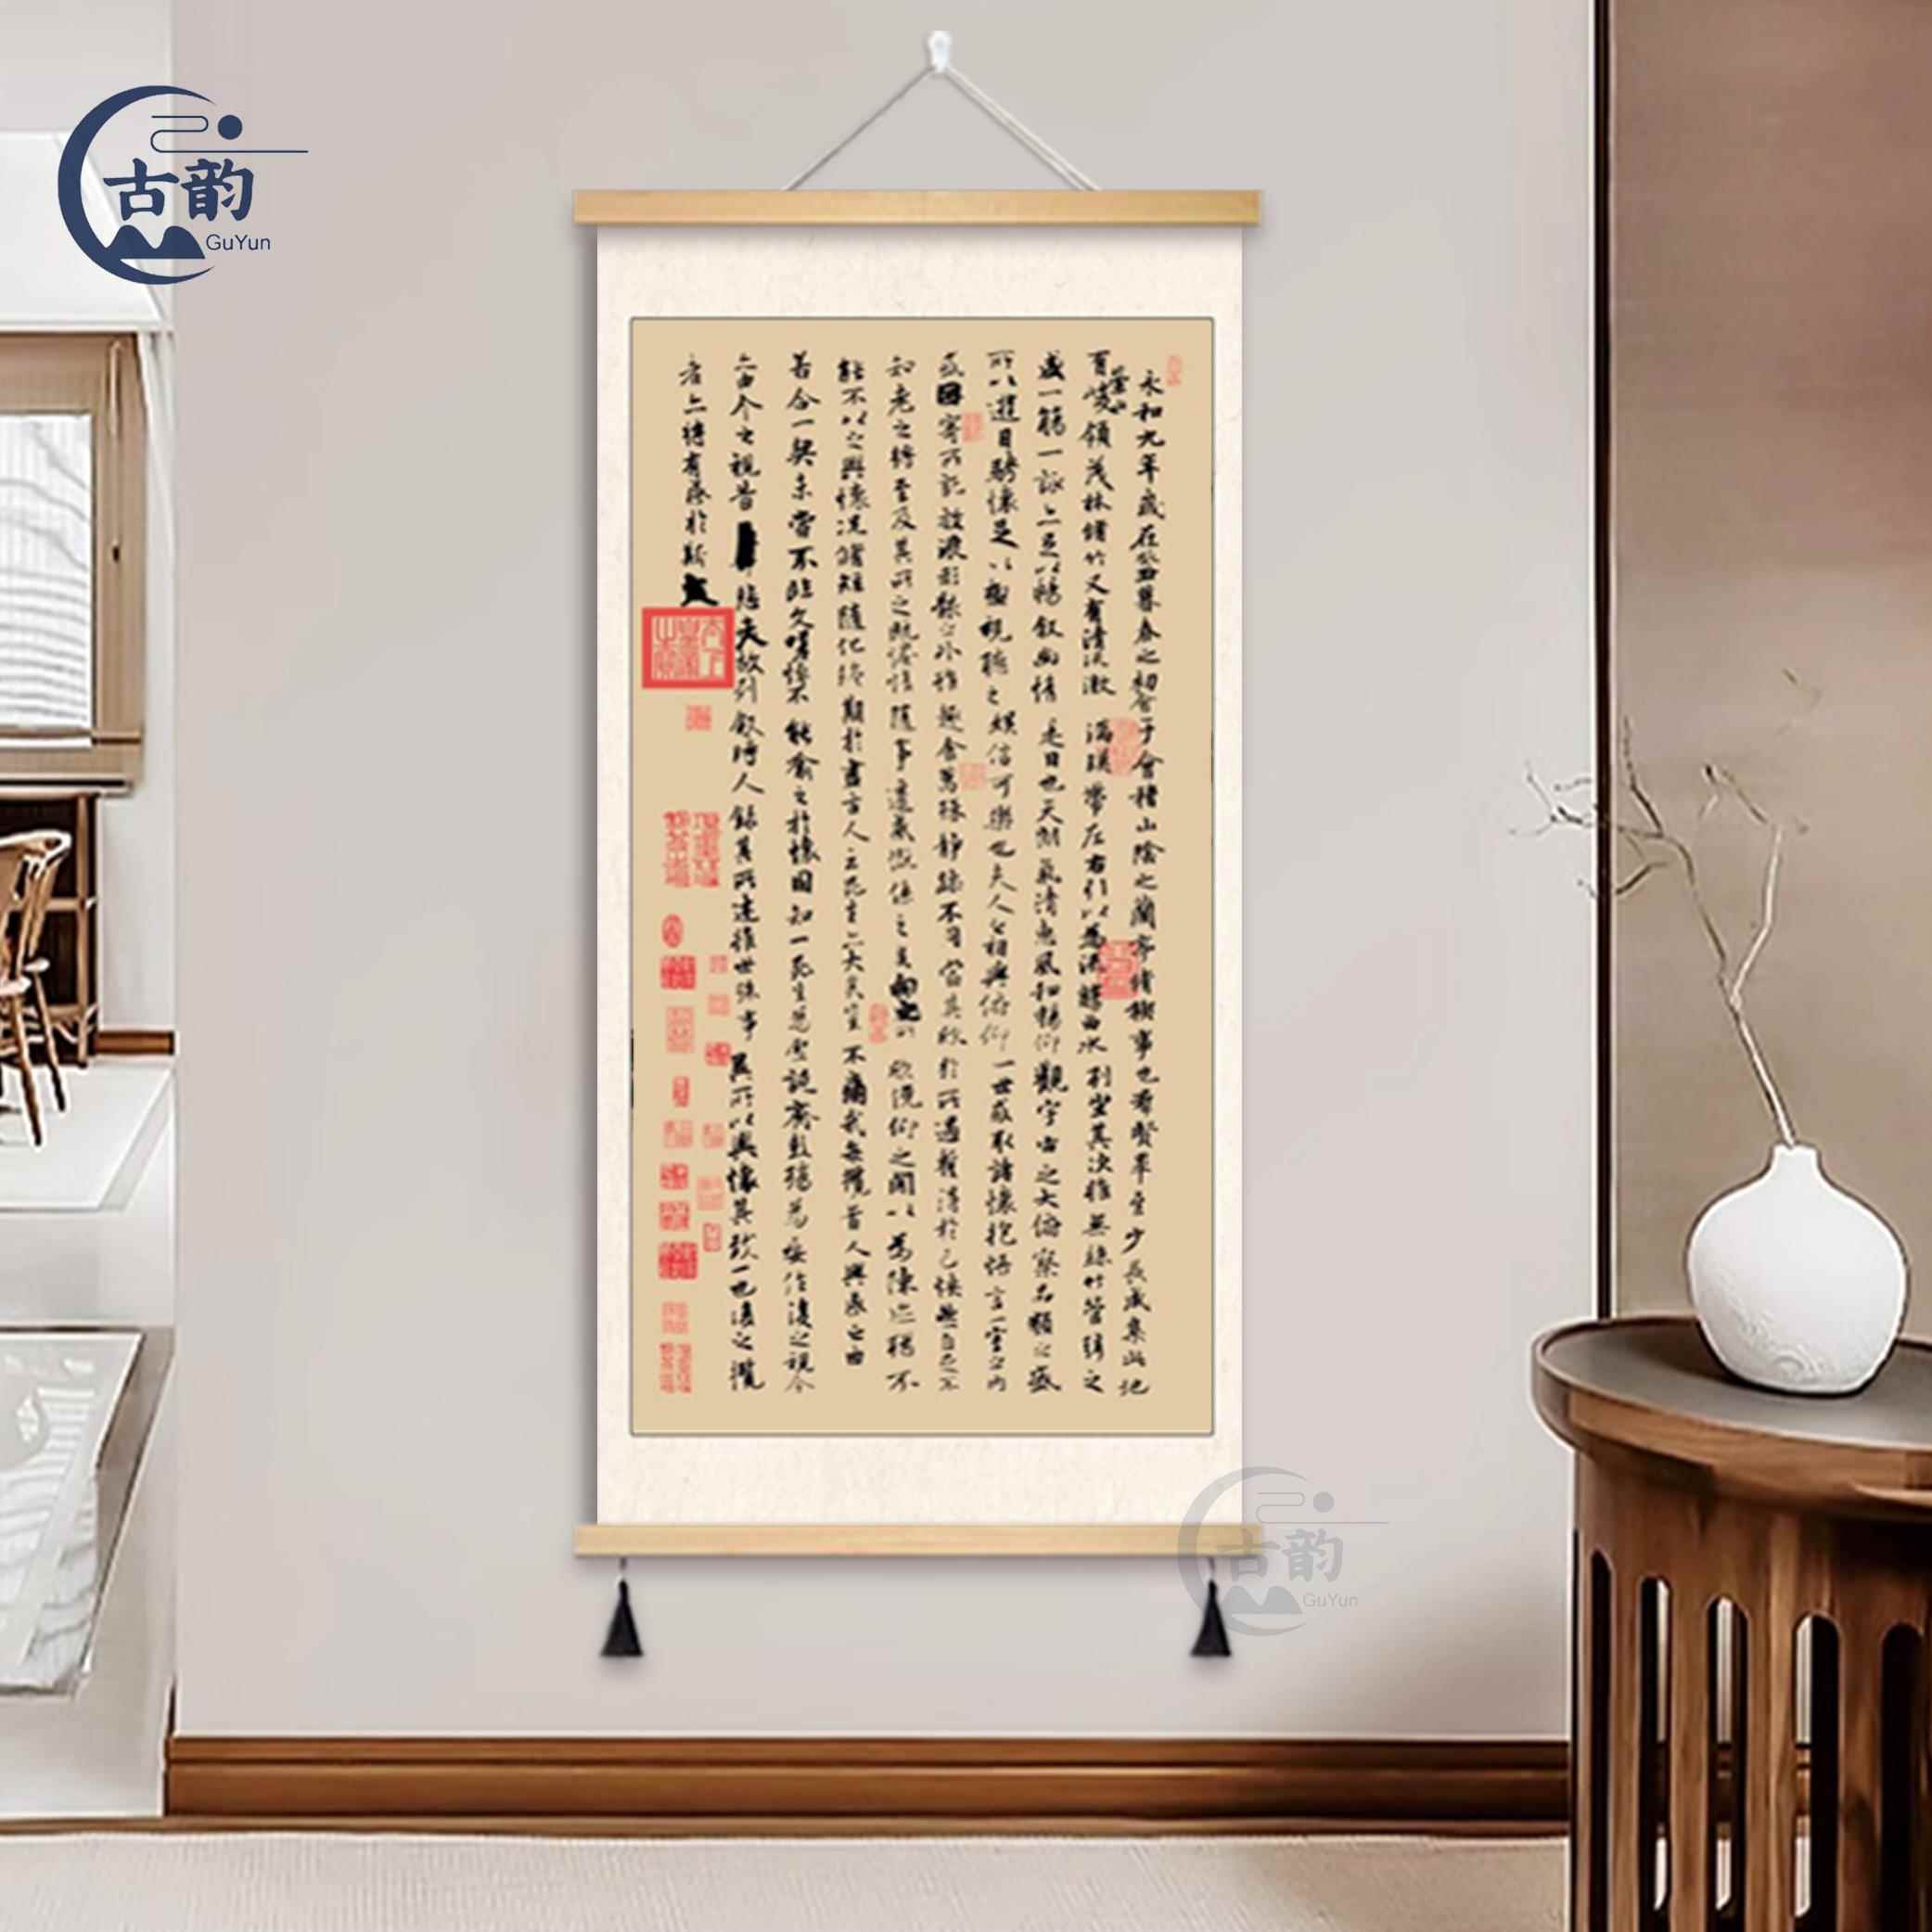 古韵
GuYun
永和九年歲在癸丑暮春之初會于會稽山陰之蘭亭脩禊事也群賢畢至少長咸集此地
有崇山峻領茂林脩竹又有清流激湍暎帶左右引以為流觴曲水列坐其次雖無絲竹管弦之
盛一觴一詠亦足以暢敘幽情是日也天朗氣清惠風和暢仰觀宇宙之大俯察品類之盛
所以遊目騁懷足以極視聽之娛信可樂也夫人之相與俯仰一世或取諸懷抱悟言一室之內
或因寄所託放浪形骸之外雖趣舍萬殊靜躁不同當其欣於所遇蹔得於己怏然自足不
知老之將至及其所之既惓情隨事遷感慨係之矣向之所欣俛仰之閒以為陳迹猶不
能不以之興懷況脩短隨化終期於盡古人云死生亦大矣豈不痛哉每攬昔人興感之由
若合一契未嘗不臨文嗟悼不能喻之於懷固知一死生為虛誕齊彭殤為妄作後之視今
亦由今之視昔悲夫故列敘時人錄其所述雖世殊事異所以興懷其致一也後之攬
者亦將有感於斯文
古韵
GuYun